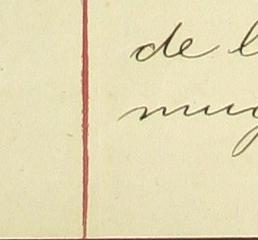 de l
mug